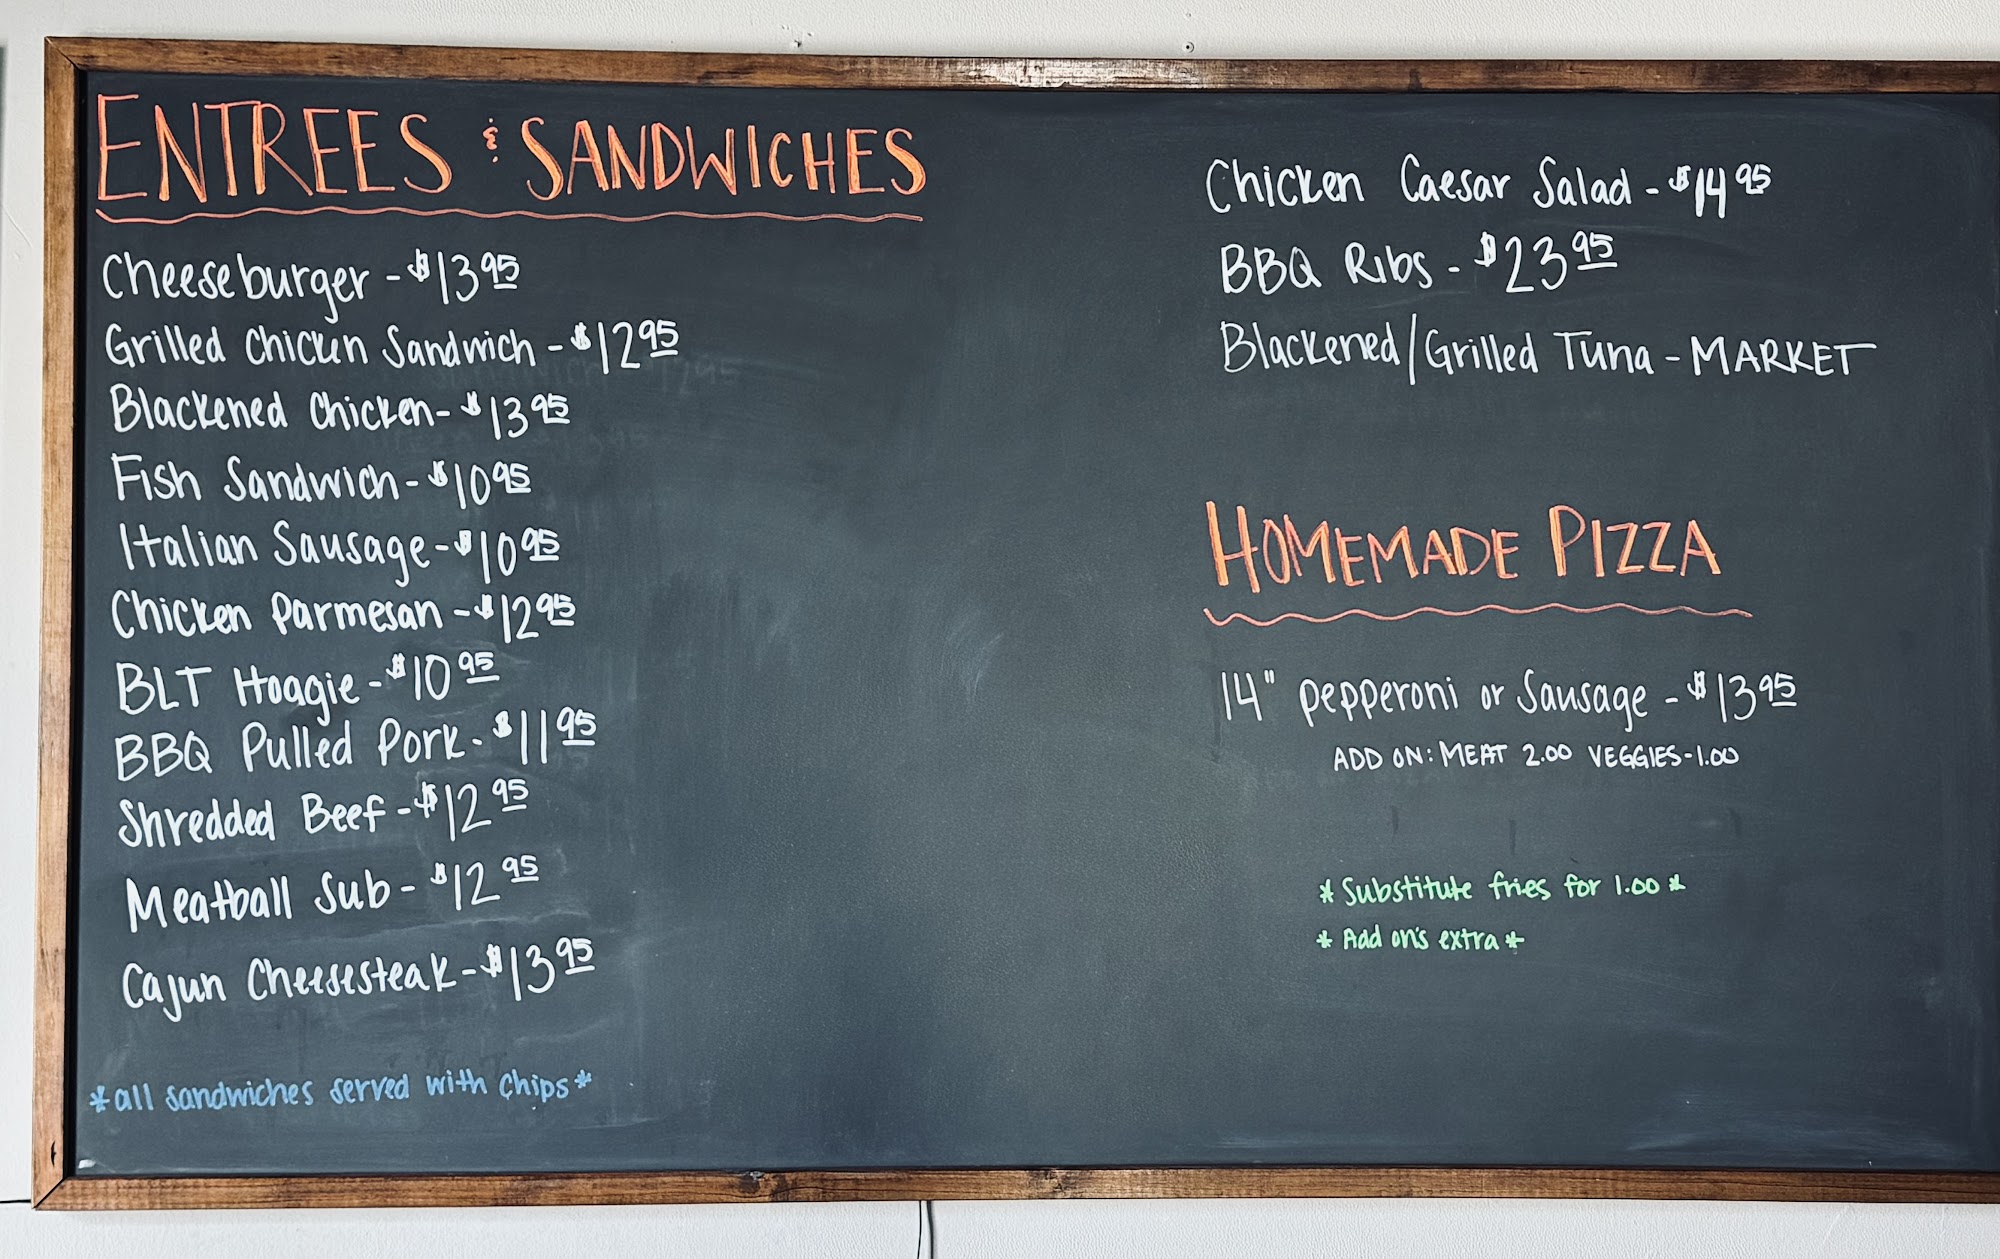 ENTREES & SANDWICHES
Cheeseburger - $13.95
Grilled Chicken Sandwich - $12.95
Blackened Chicken - $13.95
Fish Sandwich - $10.95
Italian Sausage - $10.95
Chicken Parmesan - $12.95
BLT Hoagie - $10.95
BBQ Pulled Pork - $11.95
Shredded Beef - $12.95
Meatball Sub - $12.95
Cajun Cheesesteak - $13.95
*all sandwiches served with chips*
Chicken Caesar Salad - $14.95
BBQ Ribs - $23.95
Blackened/Grilled Tuna - MARKET
HOMEMADE PIZZA
14" Pepperoni or Sausage - $13.95
ADD ON: MEAT 2.00 VEGGIES-1.00
*Substitute fries for 1.00*
*Add on's extra*